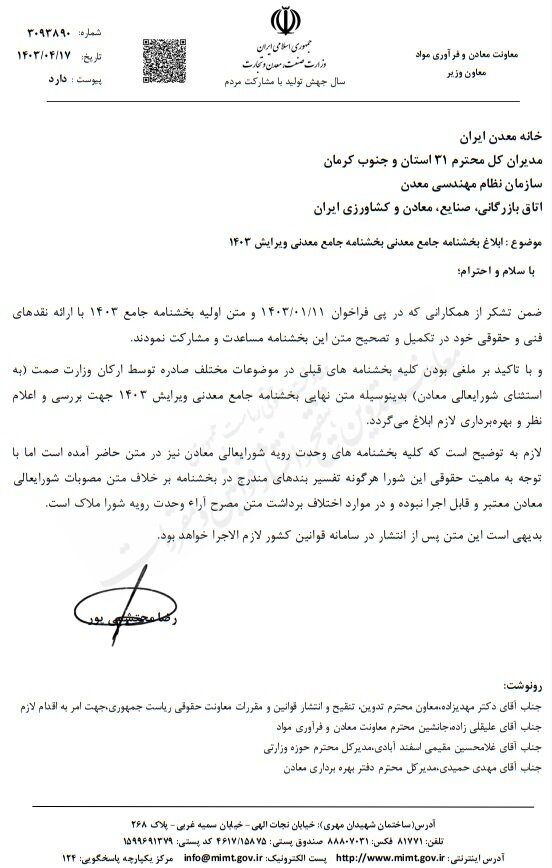 جمهوری اسلامی ایران
وزارت صنعت، معدن و تجارت
سال جهش تولید با مشارکت مردم
معاونت معادن و فرآوری مواد
معاون وزیر
شماره: ۳۰۹۳۸۹۰
تاریخ: ۱۴۰۳/۰۴/۱۷
پیوست : دارد
خانه معدن ایران
مدیران کل محترم ۳۱ استان و جنوب کرمان
سازمان نظام مهندسی معدن
اتاق بازرگانی، صنایع، معادن و کشاورزی ایران
موضوع : ابلاغ بخشنامه جامع معدنی بخشنامه جامع معدنی ویرایش ۱۴۰۳
با سلام و احترام؛
ضمن تشکر از همکارانی که در پی فراخوان ۱۴۰۳/۰۱/۱۱ و متن اولیه بخشنامه جامع ۱۴۰۳ با ارائه نقدهای
فنی و حقوقی خود در تکمیل و تصحیح متن این بخشنامه مساعدت و مشارکت نمودند.
و با تاکید بر ملغی بودن کلیه بخشنامه های قبلی در موضوعات مختلف صادره توسط ارکان وزارت صمت (به
استثنای شورایعالی معادن) بدینوسیله متن نهایی بخشنامه جامع معدنی ویرایش ۱۴۰۳ جهت بررسی و اعلام
نظر و بهره‌برداری لازم ابلاغ می‌گردد.
لازم به توضیح است که کلیه بخشنامه های وحدت رویه شورایعالی معادن نیز در متن حاضر آمده است اما با
توجه به ماهیت حقوقی این شورا هرگونه تفسیر بندهای مندرج در بخشنامه بر خلاف متن مصوبات شورایعالی
معادن معتبر و قابل اجرا نبوده و در موارد اختلاف برداشت متن مصرح آراء وحدت رویه شورا ملاک است.
بدیهی است این متن پس از انتشار در سامانه قوانین کشور لازم الاجرا خواهد بود.
رضا محتشمی پور
رونوشت:
جناب آقای دکتر مهدیزاده،معاون محترم تدوین، تنقیح و انتشار قوانین و مقررات معاونت حقوقی ریاست جمهوری،جهت امر به اقدام لازم
جناب آقای علیقلی زاده،جانشین محترم معاونت معادن و فرآوری مواد
جناب آقای غلامحسین مقیمی اسفند آبادی،مدیرکل محترم حوزه وزارتی
جناب آقای مهدی حمیدی،مدیرکل محترم دفتر بهره برداری معادن
آدرس(ساختمان شهیدان مهری): خیابان نجات الهی - خیابان سمیه غربی - پلاک ۲۶۸
تلفن: ۸۱۷۷۱ فکس: ۸۸۸۰۷۰۳۱ صندوق پستی: ۴۶۱۷/۱۵۸۷۵ کد پستی: ۱۵۹۹۶۹۱۳۷۹
آدرس اینترنتی: http://www.mimt.gov.ir پست الکترونیک: info@mimt.gov.ir مرکز یکپارچه پاسخگویی: ۱۲۴